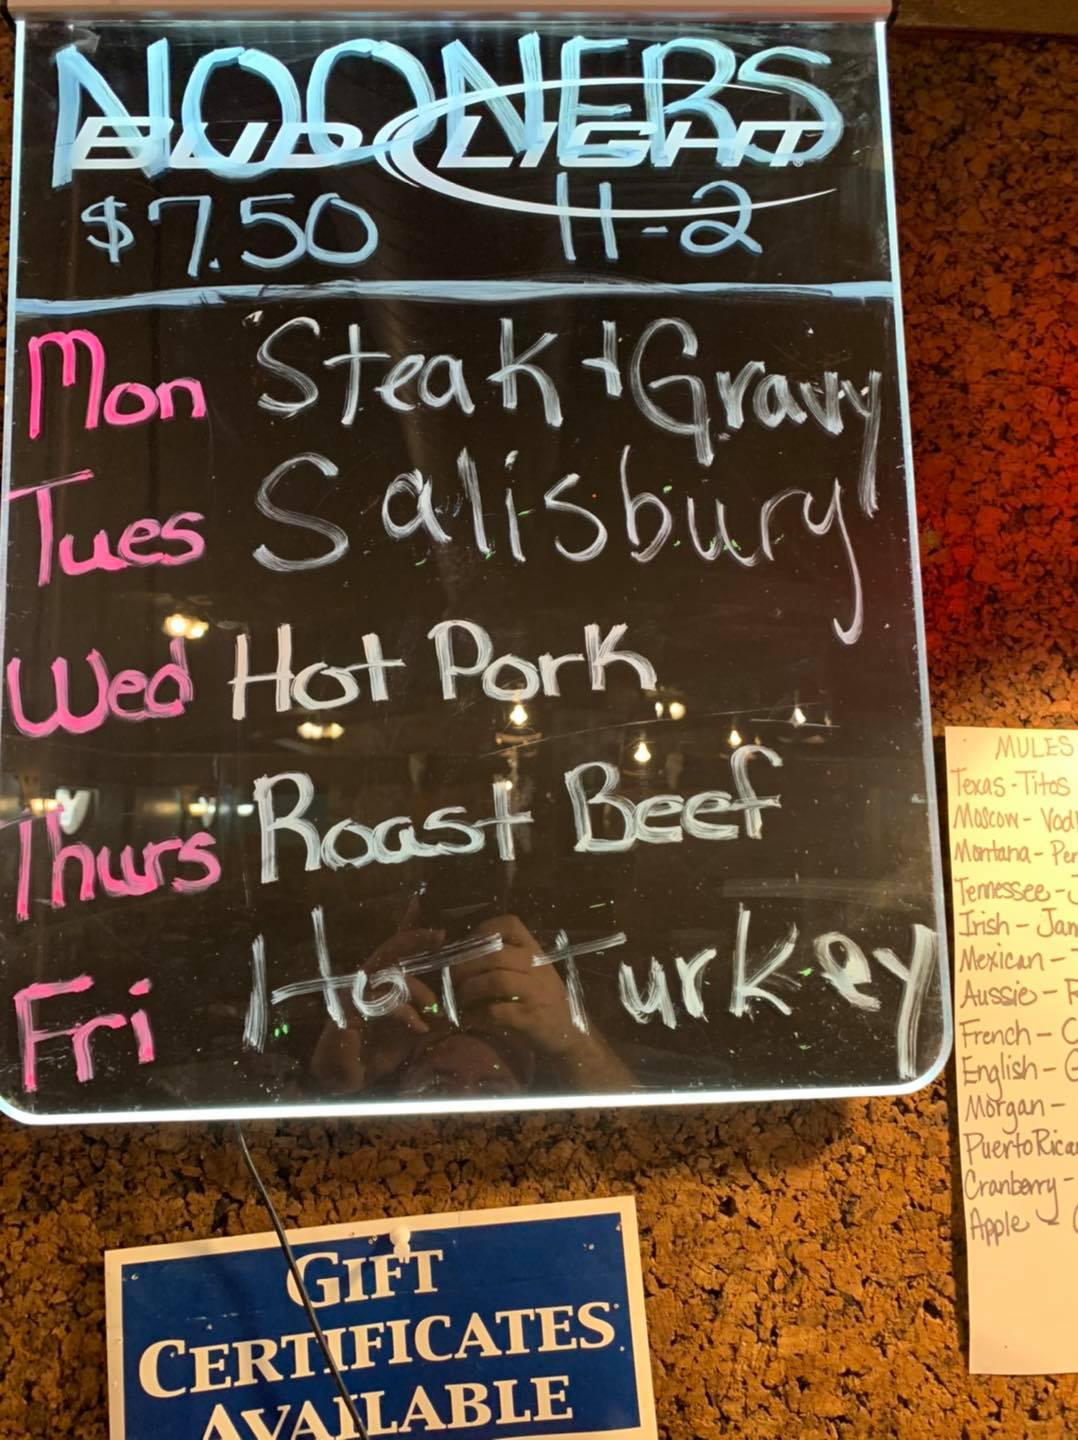 NOONERS
BUD LIGHT
$7.50 11-2
Mon Steak + Gravy
Tues Salisbury
Wed Hot Pork
Thurs Roast Beef
Fri Hot Turkey
MULES
Texas - Titos
Moscow -
Montana -
Tennessee -
Irish -
Mexican -
Aussie -
French -
English -
Morgan -
Cranberry -
Apple -
GIFT
CERTIFICATES
AVAILABLE